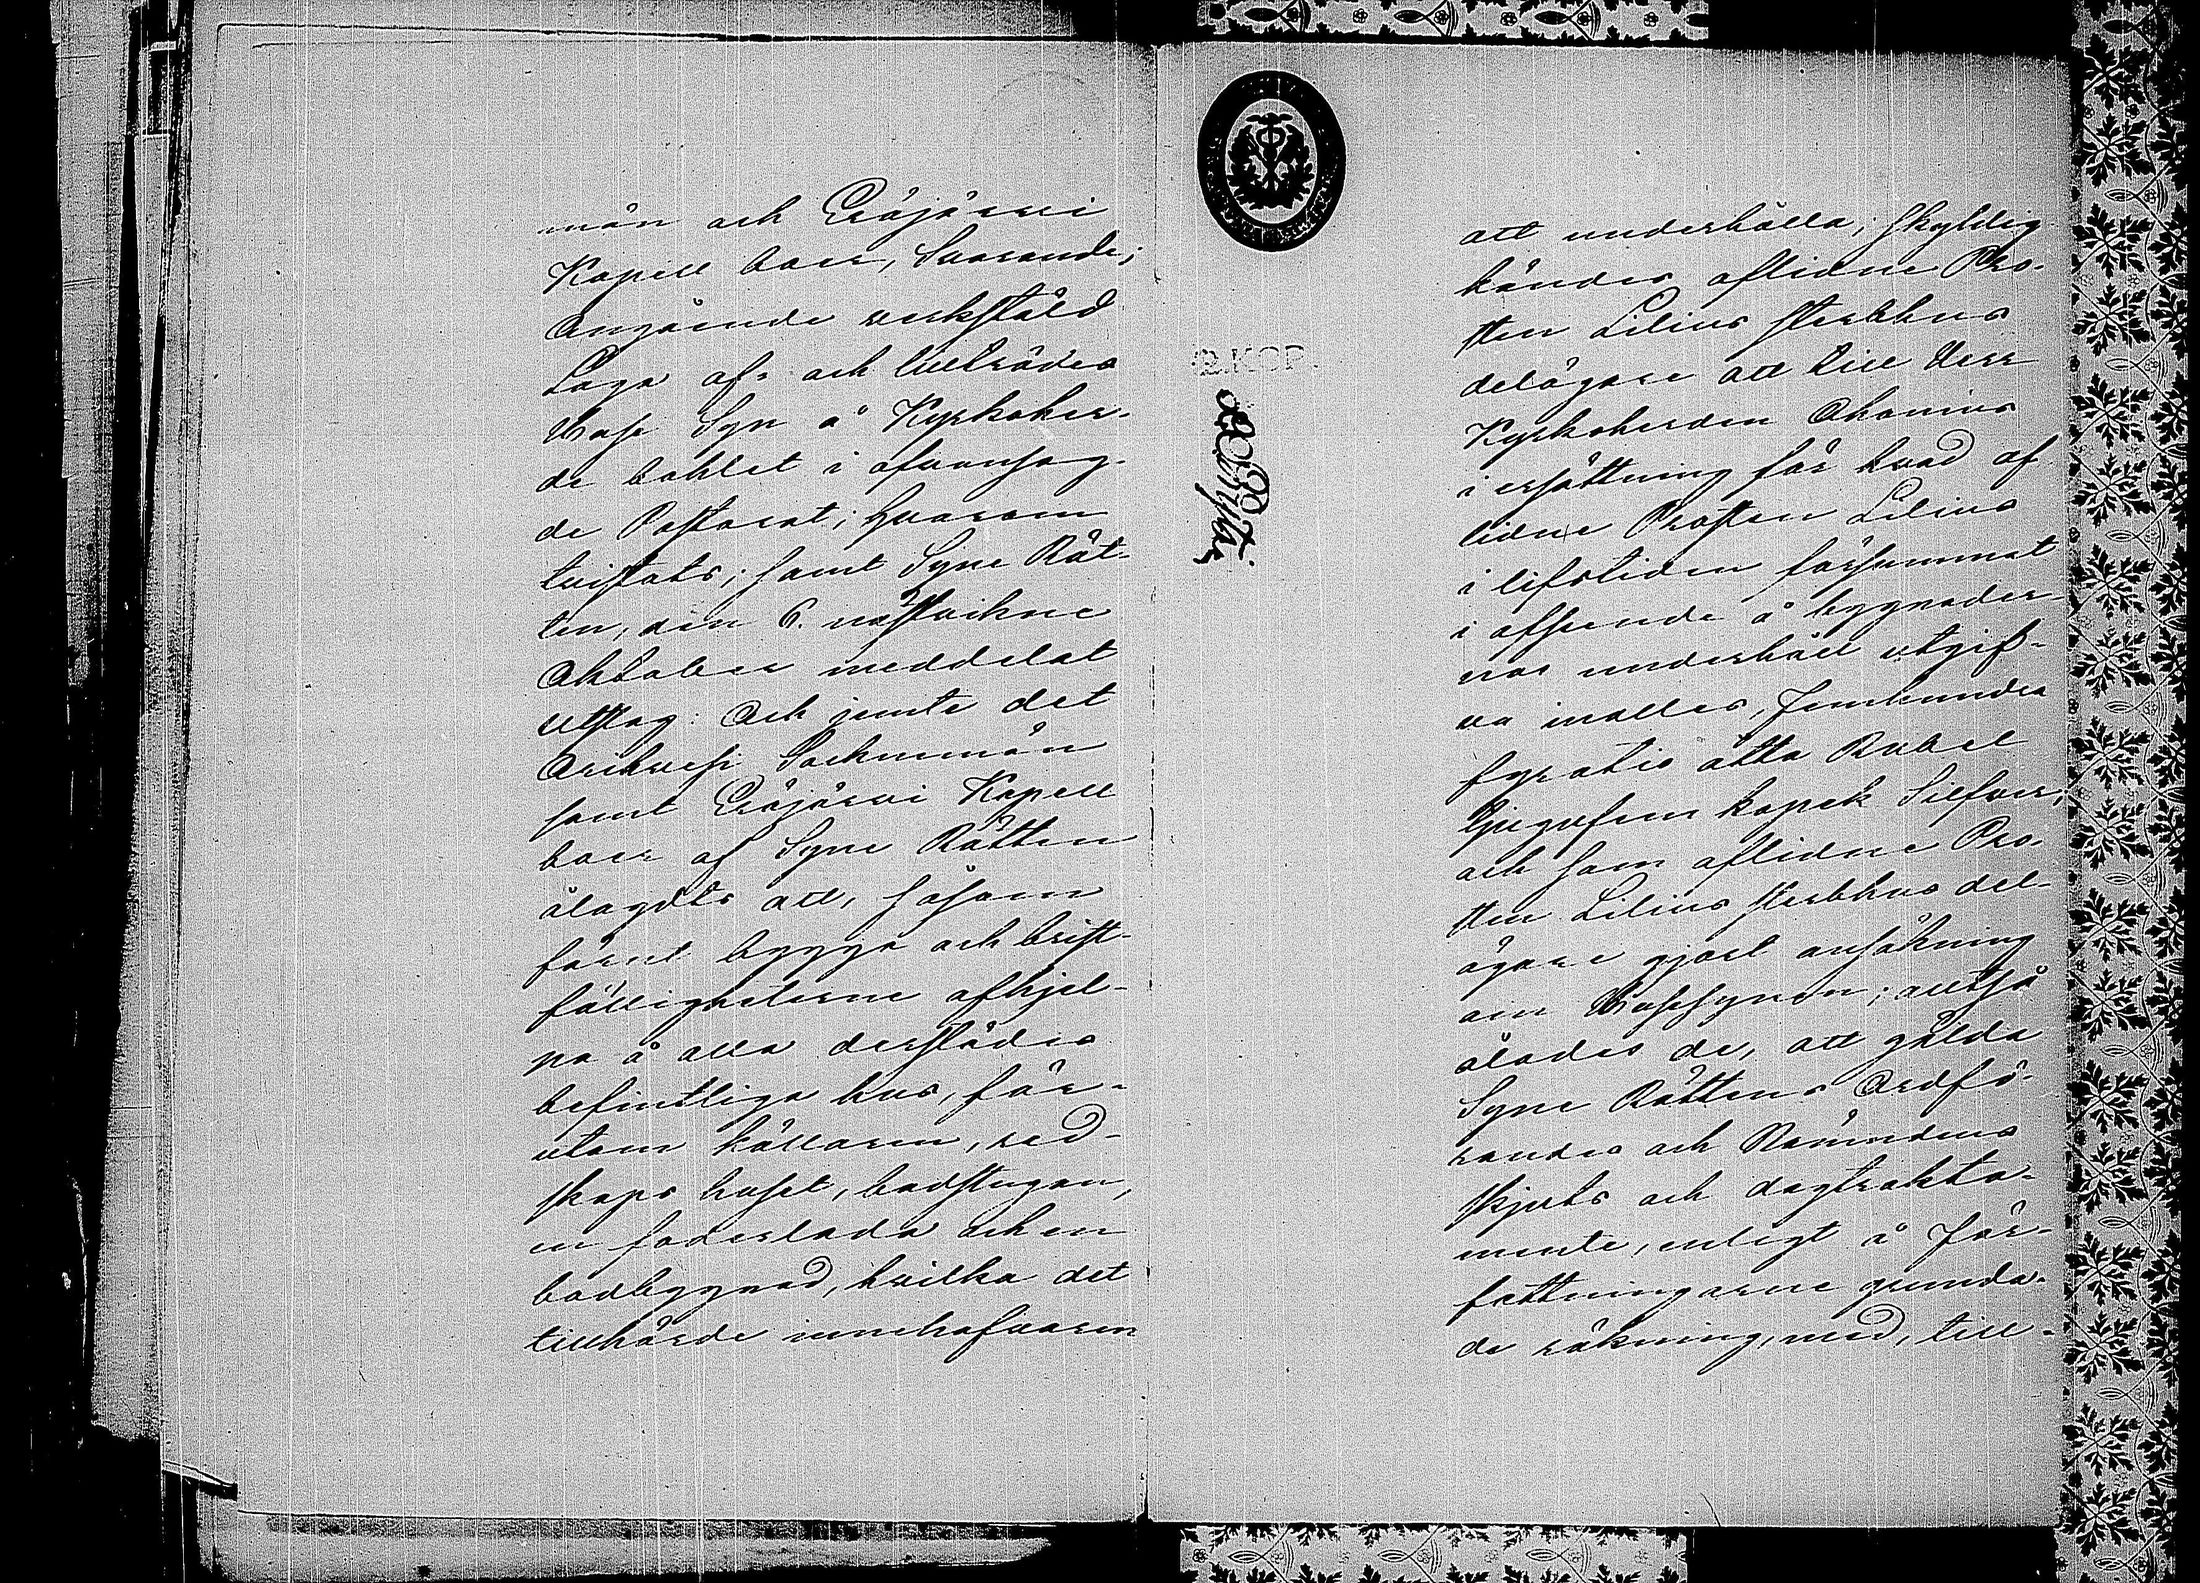 män och Eräjärvi
Kapell boer, Svarande;
Angående verkställd
Laga af- och tillträdes
Huse Syn å Kyrkoher-
de bohlet i ofvansag-
de Pastorat; hvarom
tvistats; samt Syne Rät-
ten, den 6. nästvikne
Oktober meddelat
utslag: Och jemte det
Orihvesi Sockenmän
samt Eräjärvi Kapell
boer af Syne Rätten
ålagdts att, såsom
förut bygga och brist-
fälligheterne afhjel-
pa å alla derstädes
befintliga hus, för-
utom källaren, red-
skaps huset, badstugan,
en foderlada och en
bodbyggnad, hvilka det
tillhörde innehafvaren
2. KOP.
att underhålla; skyldig
kändes aflidne Pro-
sten Lilius sterbhus
delägare att till Herr
Kyrkoherden Ahonius
i ersättning för hvad af
lidne Prosten Lilius
i lifstiden försummat
i afseende å byggnader-
nas underhåll utgif-
va inalles, femhundra
fyratio åtta Rubel
tjugufem kopek Silfver;
och som aflidne Pro-
sten Lilius sterbhus del-
ägare gjort ansökning
om Husesynen; alltså
ålades de, att gälda
Syne Rättens Ordfö-
randes och Nämndens
skjuts och dagtrakta-
mente, enligt å För-
fattningarne grunda-
de räkning, med, till-